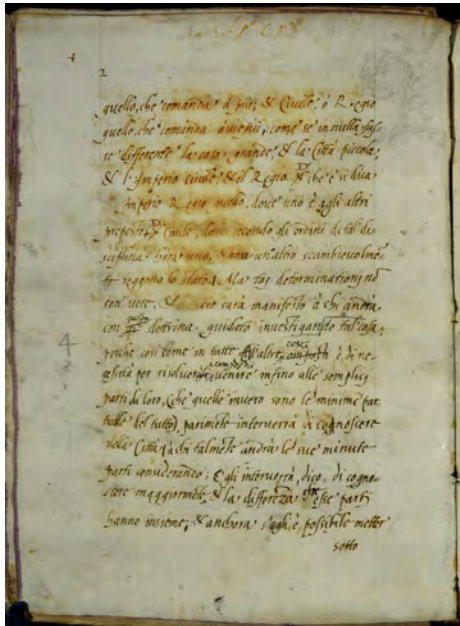 4
2
quello, che comanda à piu; & Civile; ò Regio
quello, che comanda: come se in nulla fus
se differente la casa grande, & la Città piccola;
& l'Imperio civile & il Regio. che e si dica
Imperio Regio quello, dove uno è agli altri
preposto, Civile, dove secondo gli ordini di tal di
sciplina hora uno, & hora un'altro scambievolmẽ
te reggono lo stato. Ma tai determinationi nõ
son vere, & ciò sarà manifesto à chi andrà
con dottrina guidato investigando tal cosa,
perche così come in tutte l'altre cose composti è di ne
cessità per risolvere il composito, venire infino alle semplici
parti di loro, (che quelle invero sono le minime par
ticelle del tutto), parimẽte interverrà di cognoscere
nella Città à chi talmẽte andrà le sue minute
parti considerando; Egli interverrà, dico, di cogno=
scere maggiormẽte, & la differenza che esse parti
hanno insieme; & anchora s'egli è possibile metter
sotto
4